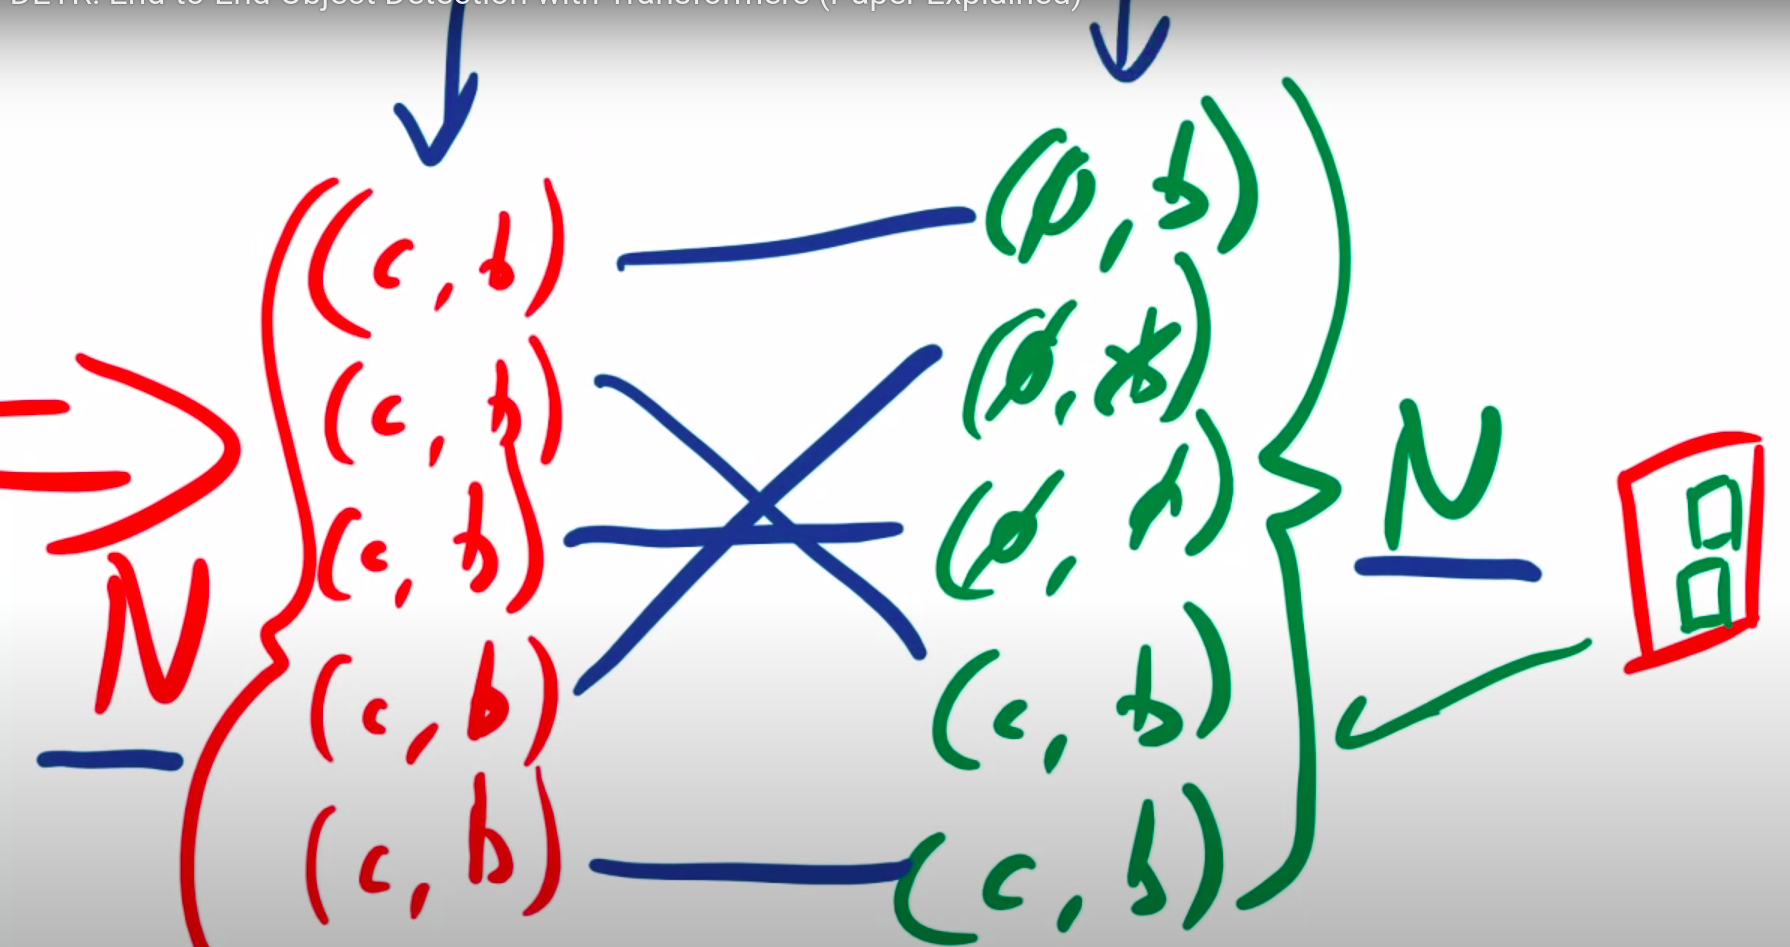 DETR: End-to-End Object Detection with Transformers (Paper Explained)
(c, b) (ø, b)
(c, b) (ø, b)
(c, b) (ø, b)
N
N
(c, b) (c, b)
(c, b) (c, b)